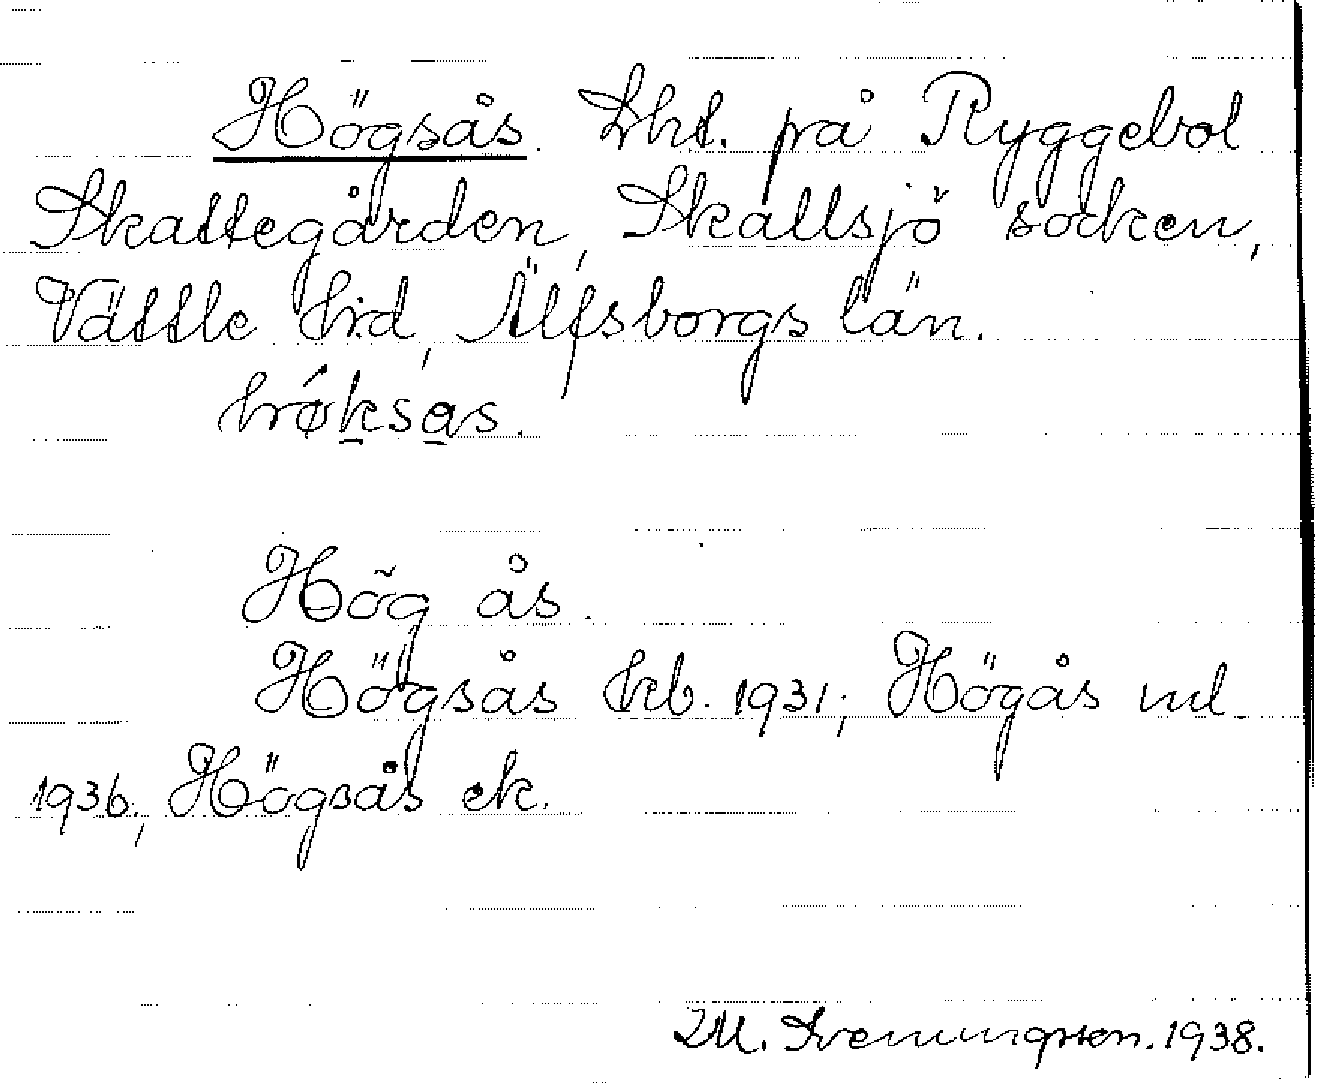 Högsås. Lht. på Ryggebol
Skattegården, Skallsjö socken,
Vättle hd, Älfsborgs län.
Hög ås.
Högsås kb. 1931; Högås ml
1936; Högsås ek.
M. Svenungsson. 1938.